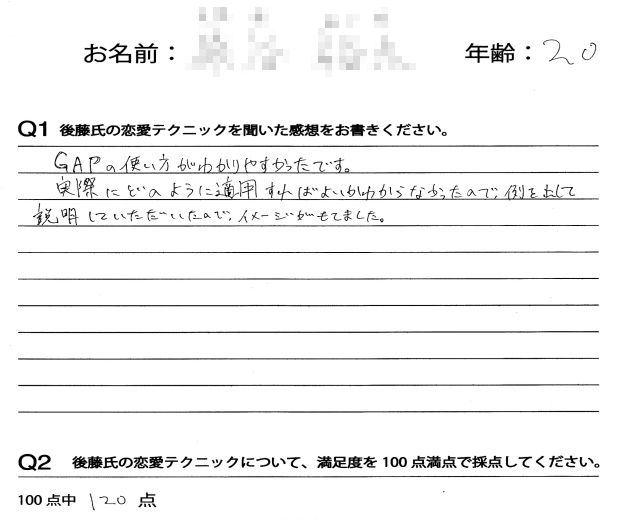 お名前： 年齢：20
Q1 後藤氏の恋愛テクニックを聞いた感想をお書きください。
GAPの使い方がわかりやすかったです。
実際にどのように適用すればよいかわからなかったので、例を出して
説明していただいたので、イメージがもてました。
Q2 後藤氏の恋愛テクニックについて、満足度を100点満点で採点してください。
100点中 120 点